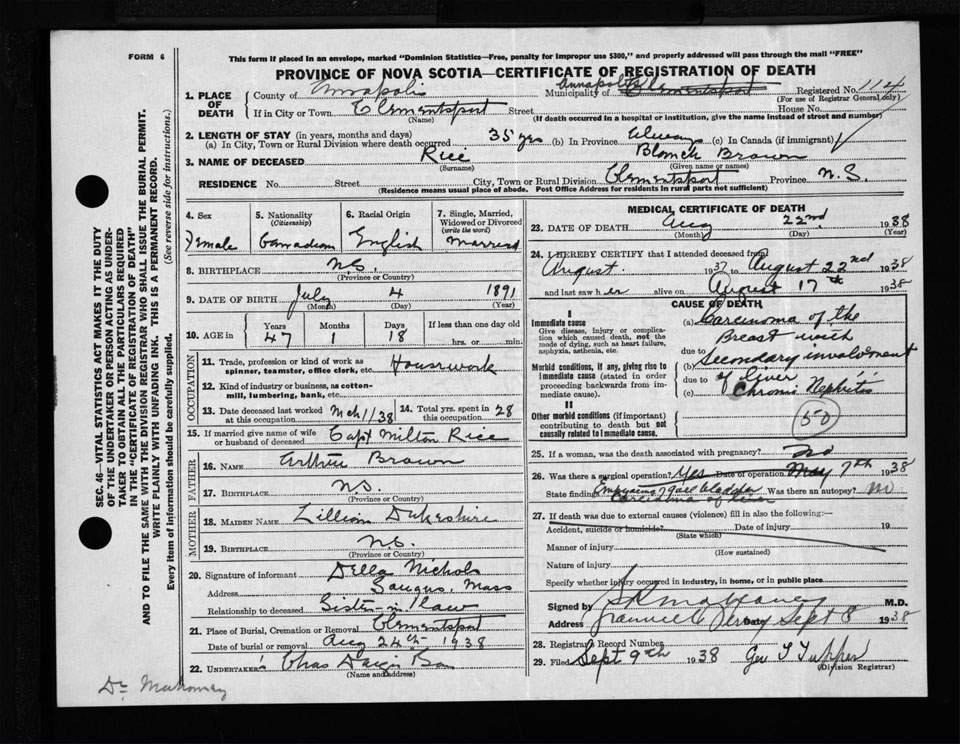 FORM 6
This form if placed in an envelope, marked "Dominion Statistics—Free, penalty for improper use $300," and properly addressed will pass through the mail "FREE"
PROVINCE OF NOVA SCOTIA—CERTIFICATE OF REGISTRATION OF DEATH
1. PLACE OF DEATH
County of Annapolis Municipality of Annapolis Clementsport Registered No.
(For use of Registrar General only)
If in City or Town Clementsport Street House No.
(Name) (If death occurred in a hospital or institution, give the name instead of street and number)
2. LENGTH OF STAY (in years, months and days)
(a) In City, Town or Rural Division where death occurred 35 yrs (b) In Province Always (c) In Canada (if immigrant)
3. NAME OF DECEASED Rice Blanch Brown
(Surname) (Given name or names)
RESIDENCE No. Street City, Town or Rural Division Clementsport Province N.S.
(Residence means usual place of abode. Post Office Address for residents in rural parts not sufficient)
4. Sex Female
5. Nationality (Citizenship) Canadian
6. Racial Origin English
7. Single, Married, Widowed or Divorced (write the word) Married
8. BIRTHPLACE N.S.
(Province or Country)
9. DATE OF BIRTH July 4 1891
(Month) (Day) (Year)
10. AGE in Years Months Days If less than one day old
47 1 18 hrs. or min.
OCCUPATION
11. Trade, profession or kind of work as spinner, teamster, office clerk, etc. Housework
12. Kind of industry or business, as cotton-mill, lumbering, bank, etc.
13. Date deceased last worked at this occupation Mch 1/38
14. Total yrs. spent in this occupation 28
15. If married give name of wife or husband of deceased Capt Milton Rice
FATHER
16. NAME Arthur Brown
17. BIRTHPLACE N.S.
(Province or Country)
MOTHER
18. MAIDEN NAME Lillian Dukeshire
19. BIRTHPLACE N.S.
(Province or Country)
20. Signature of informant Della Nichols
Address Saugus, Mass
Relationship to deceased Sister in law
21. Place of Burial, Cremation or Removal Clementsport
Date of burial or removal Aug 24th 1938
22. UNDERTAKER'S Chas
(Name and address)
MEDICAL CERTIFICATE OF DEATH
23. DATE OF DEATH Aug 22nd 1938
(Month) (Day) (Year)
24. I HEREBY CERTIFY that I attended deceased from
August 1937 to August 22nd 1938
and last saw her alive on August 17th 1938
CAUSE OF DEATH
I
Immediate cause
Give disease, injury or complication which caused death, not the mode of dying, such as heart failure, asphyxia, asthenia, etc.
Morbid conditions, if any, giving rise to immediate cause (stated in order proceeding backwards from immediate cause).
II
Other morbid conditions (if important) contributing to death but not causally related to immediate cause.
(a) Carcinoma of the
Breast with
due to
(b) Secondary involvment
due to of liver
(c) Chronic Nephritis
(50)
25. If a woman, was the death associated with pregnancy? No
26. Was there a surgical operation? Yes Date of operation May 7th 1938
State finding Empyema gall bladder Was there an autopsy? no
Carcinoma of liver
27. If death was due to external causes (violence) fill in also the following:—
Accident, suicide or homicide? Date of injury 19
(State which)
Manner of injury
(How sustained)
Nature of injury
Specify whether injury occurred in industry, in home, or in public place
Signed by M.D.
Address Granville Ferry Date Sept 8 1938
28. Registrar's Record Number
29. Filed Sept 9th 1938 Geo Tupper
(Division Registrar)
SEC. 46—VITAL STATISTICS ACT MAKES IT THE DUTY
OF THE UNDERTAKER OR PERSON ACTING AS UNDER-
TAKER TO OBTAIN ALL THE PARTICULARS REQUIRED
IN THE "CERTIFICATE OF REGISTRATION OF DEATH"
AND TO FILE THE SAME WITH THE DIVISION REGISTRAR WHO SHALL ISSUE THE BURIAL PERMIT.
WRITE PLAINLY WITH UNFADING INK. THIS IS A PERMANENT RECORD.
Every item of information should be carefully supplied. (See reverse side for instructions.)
Dr Mahoney